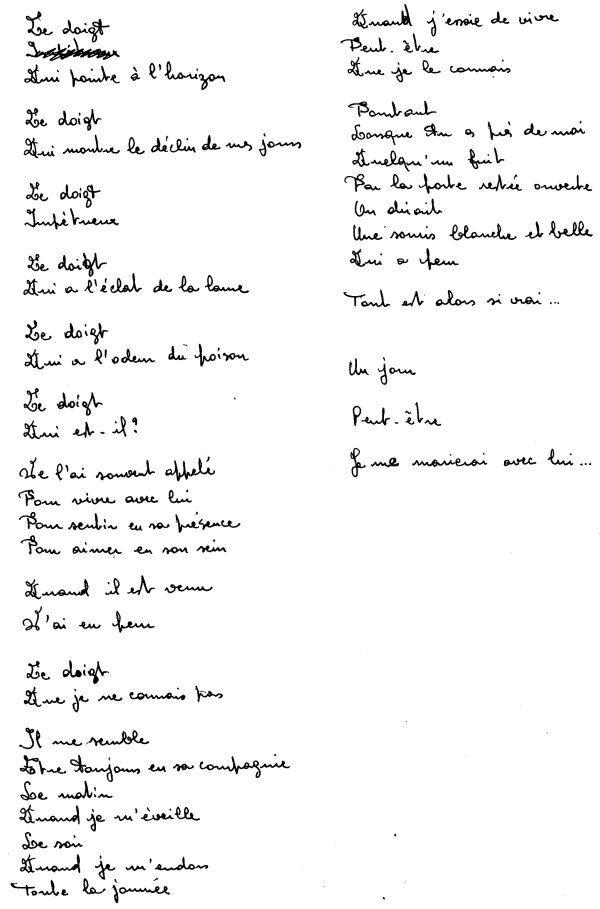 Le doigt
Qui pointe à l'horizon
Le doigt
Qui montre le déclin de mes jours
Le doigt
Impétueux
Le doigt
Qui a l'éclat de la lame
Le doigt
Qui a l'odeur du poison
Le doigt
Qui est-il?
Je l'ai souvent appelé
Pour vivre avec lui
Pour sentir en sa présence
Pour aimer en son sein
Quand il est venu
J'ai eu peur
Le doigt
Que je ne connais pas
Il me semble
Etre toujours en sa compagnie
Le matin
Quand je m'éveille
Le soir
Quand je m'endors
Toute la journée
Quand j'essaie de vivre
Peut-être
Que je le connais
Pourtant
Lorsque tu a près de moi
Quelqu'un fuit
Par la porte restée ouverte
On dirait
Une souris blanche et belle
Qui a peur
Tout est alors si vrai...
Un jour
Peut-être
Je me marierai avec lui...